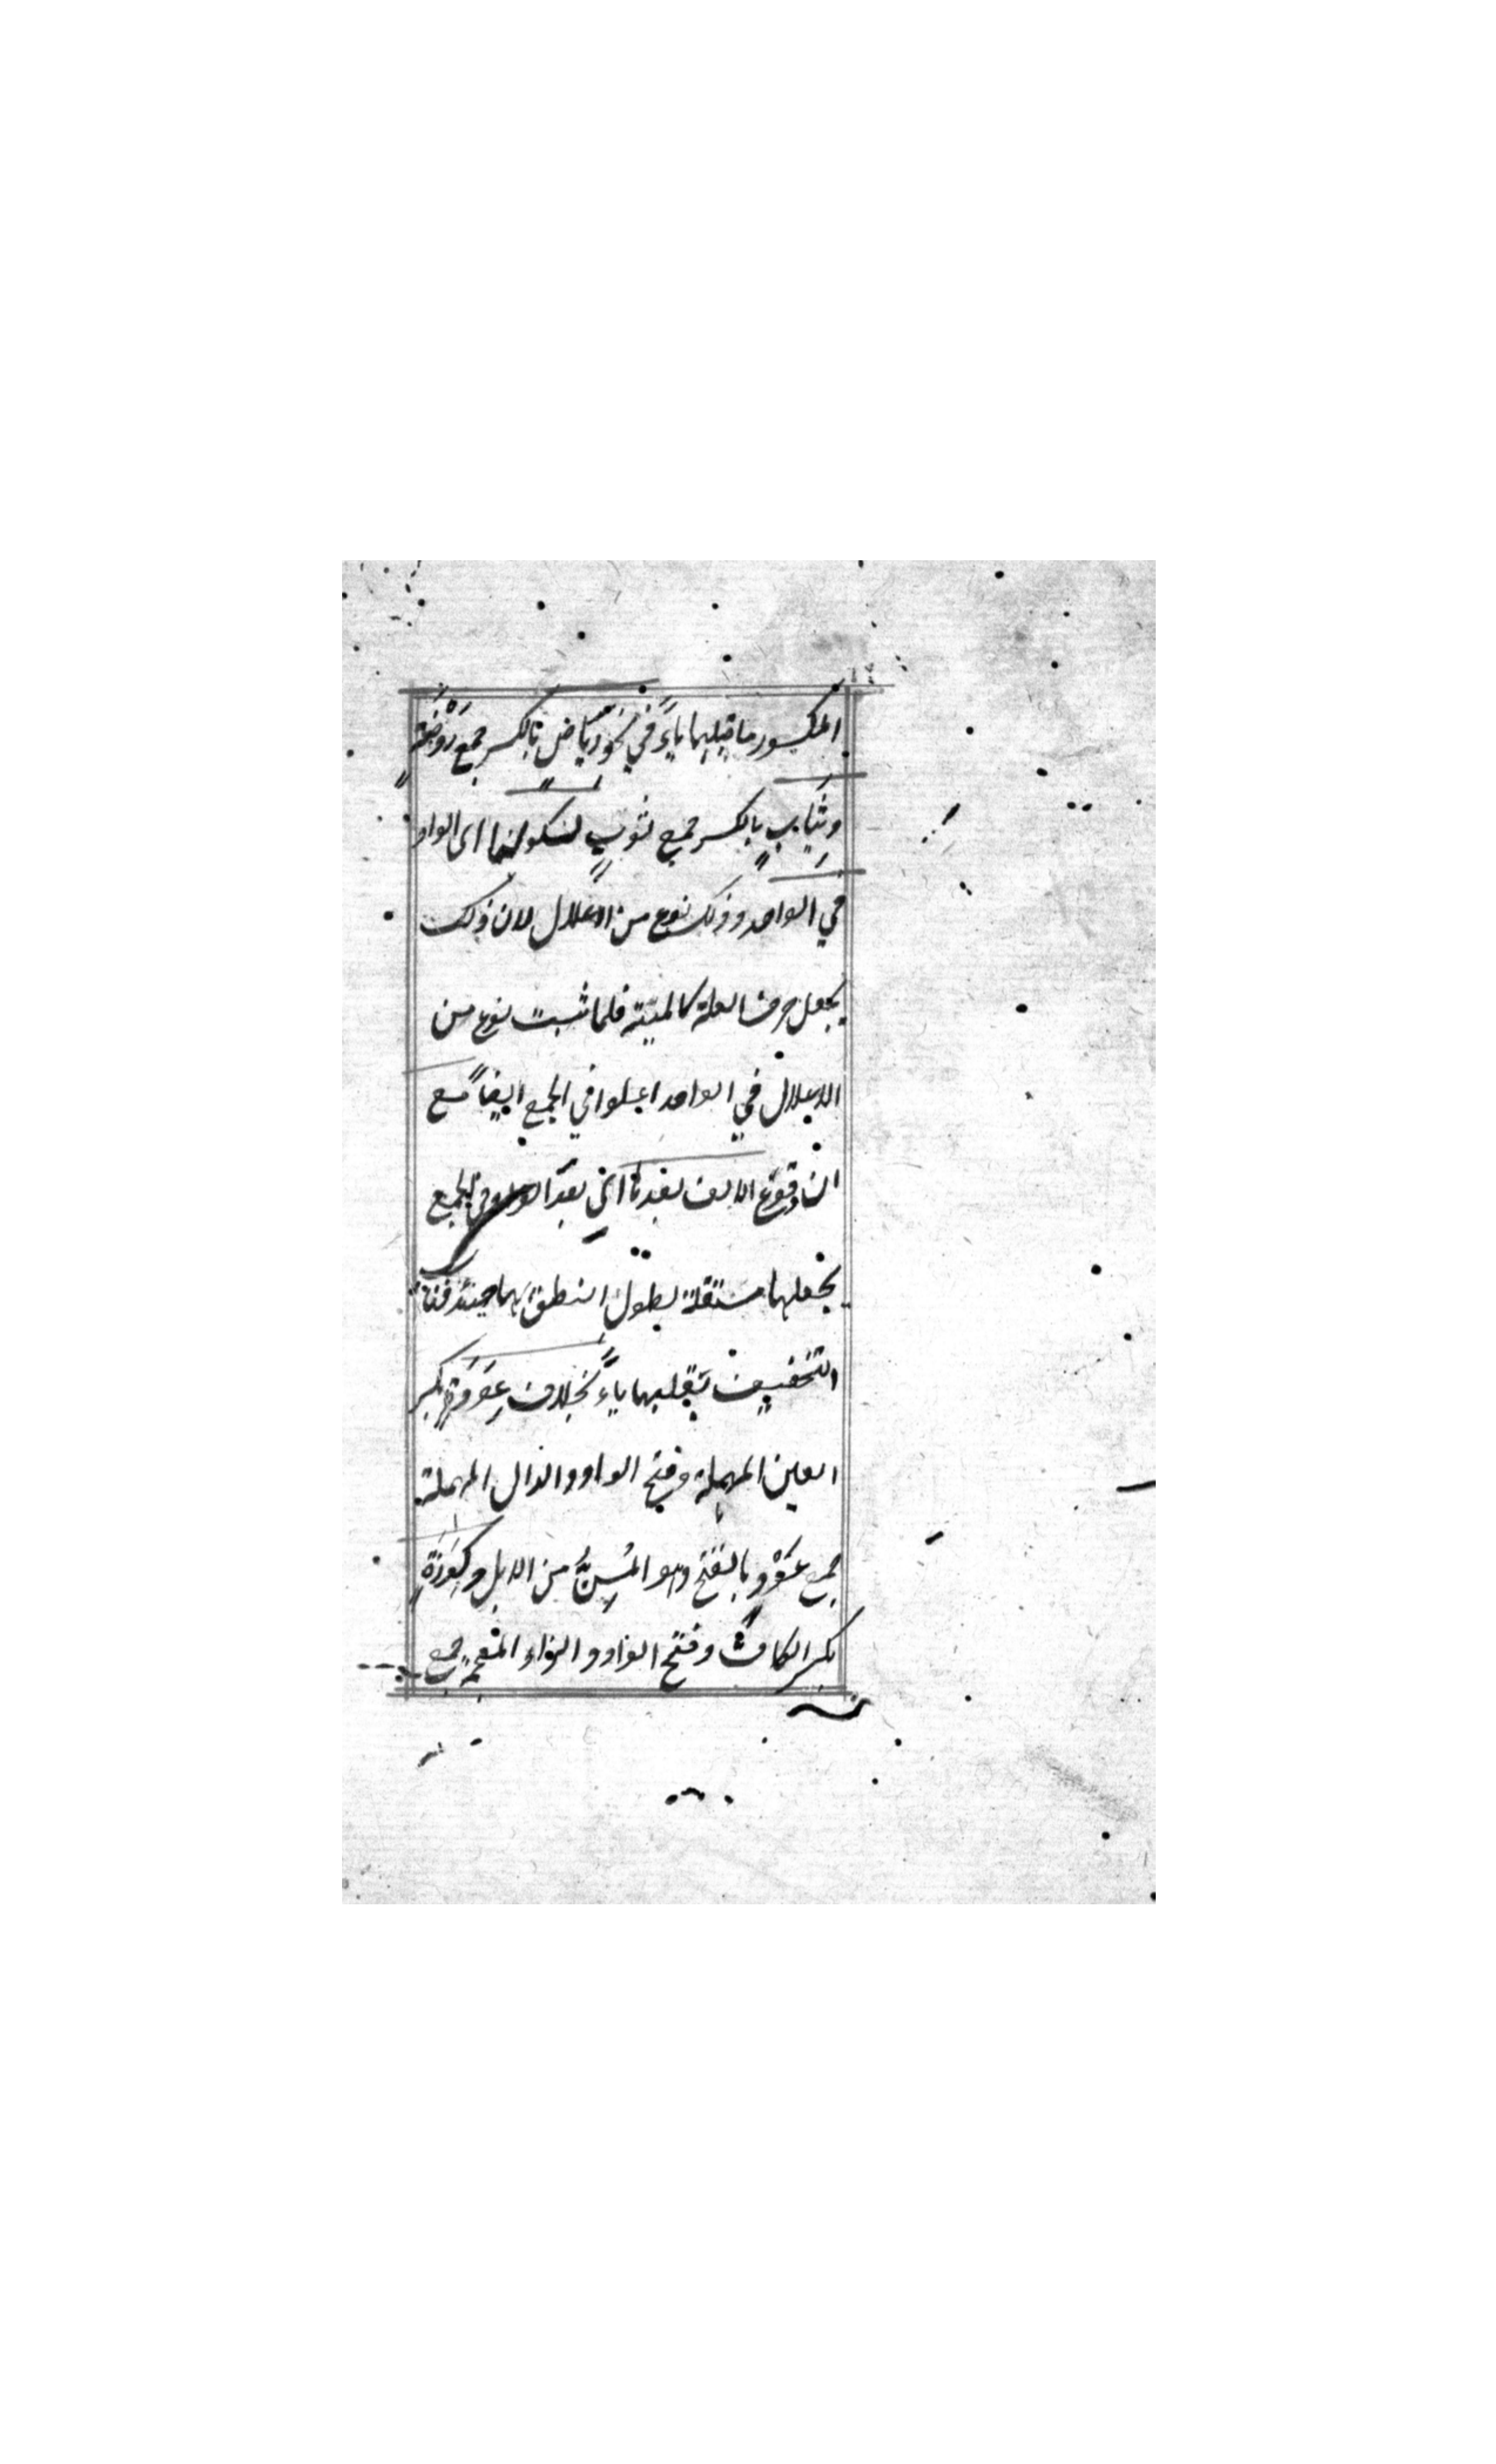 المكسور ما قبلها ياءً في نحو رياض بالكسر جمع رَوْضَةٍ
وثِيَابٍ بالكسر جمع ثوبٍ لسكونها اى الواو
في الواحد وذلك نوع من الاعلال لان ذلك
يجعل حرف العلة كالميتة فلما ثبت نوع من
الاعلال في الواحد اعلوا في الجمع ايضاً مع
ان وقوع الالف بعدها اى بعد الواو في الجمع
يجعلها مستقلة لطول النطق بها حينئذ
التخفيف بقلبها ياءً بخلاف عِوَدَةٍ بكسر
العين المهملة وفتح الواو والدال المهملة
جمع عَوْدٍ بالفتح وهو المُسِنُّ من الابل وكِوَزَةٍ
بكسر الكاف وفتح الواو والزاء المعجمة جمع